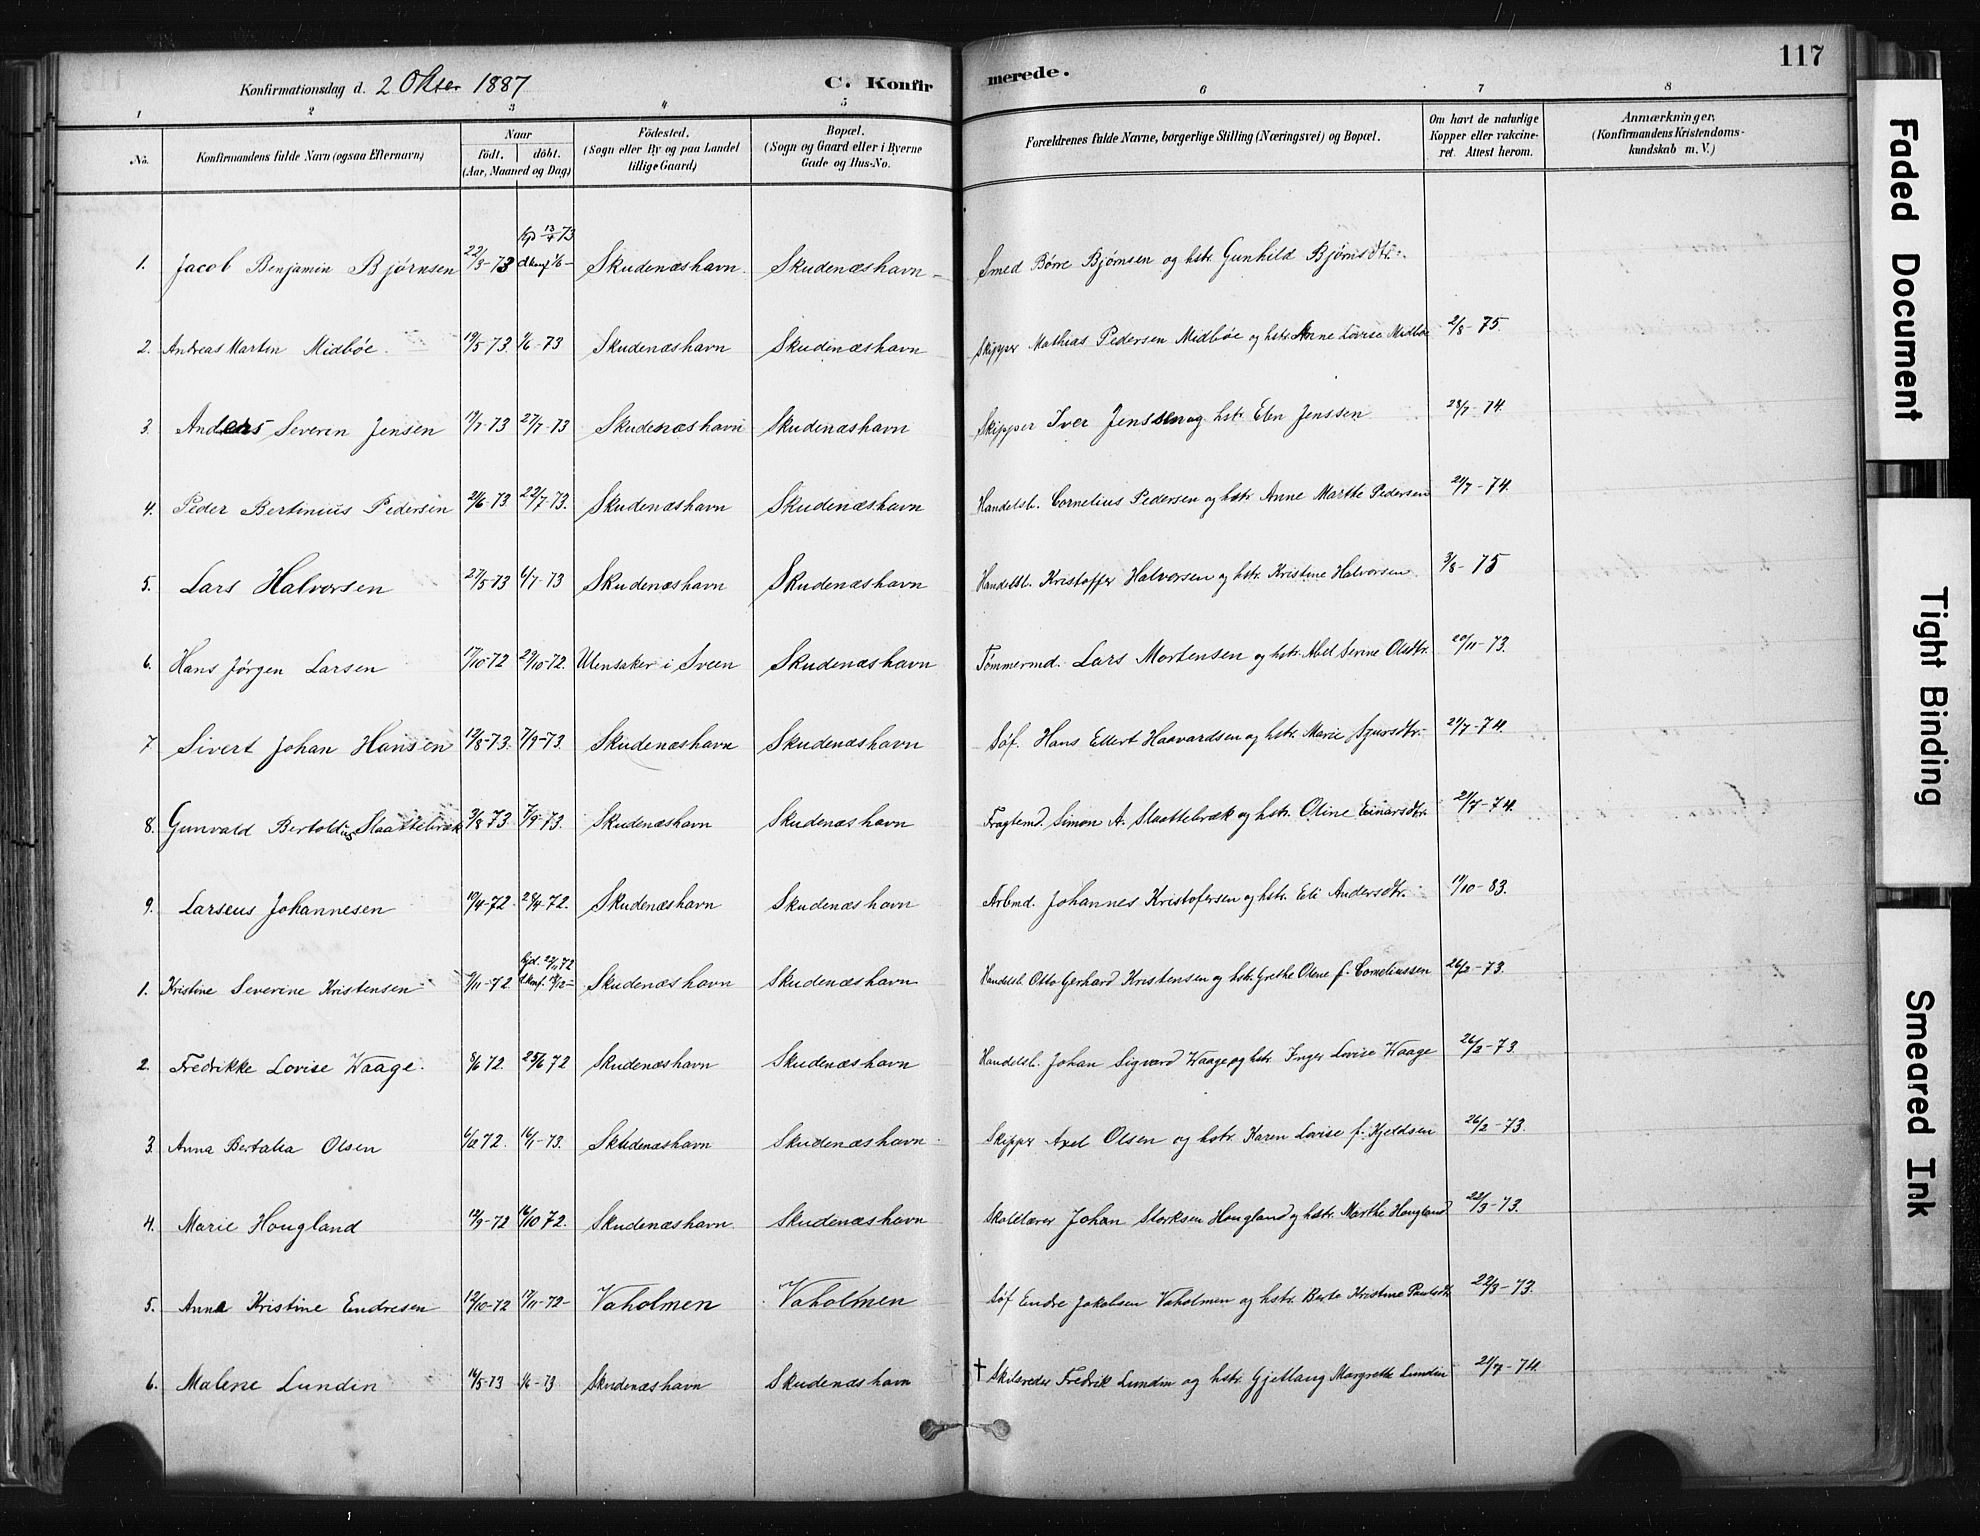 117
Konfirmationsdag d. 2 Okter 1887 C. Konfirmerede.
1 2 3 4 5 6 7 8
No. Konfirmandens fulde Navn (ogsaa Efternavn) Naar födt. döbt. (Aar, Maaned og Dag) Födested. (Sogn eller By og paa Landet tillige Gaard) Bopæl. (Sogn og Gaard eller i Byerne Gade og Hus-No. Forældrenes fulde Navne, borgerlige Stilling (Næringsvei) og Bopæl. Om havt de naturlige Kopper eller vakcineret. Attest herom. Anmærkninger, (Konfirmandens Kristendomskundskab m. V.)
1. Jacob Benjamin Bjørnsen 22/3-73 13/4 73 1/6 - Skudenæshavn. Skudenæshavn - Smed Børre Bjørnsen og hstr. Gunhild Bjørnsdtr.
2. Andreas Martin Midbøe. 19/5-73. 1/6-73 Skudenæshavn Skudenæshavn Skipper Mathias Pedersen Midbøe og hstr. Anne Lovise Midbøe 2/8-75.
3. Anders Severin Jensen 17/7-73 27/7-73 Skudenæshavn Skudenæshavn Skipper Iver Jenssen og hstr. Elen Jenssen 28/7-74.
4. Peder Bertinius Pedersen 2/6-73 22/7-73. Skudenæshavn Skudenæshavn Handelsb. Cornelius Pedersen og hstr. Anne Marthe Pedersen 21/7-74.
5. Lars Halvorsen 27/5-73 6/7-73 Skudenæshavn Skudenæshavn Handelsb. Kristoffer Halvorsen og hstr. Kristine Halvorsen. 3/8-75
6. Hans Jørgen Larsen 17/10-72 29/10-72. Ulensaker i Sveen Skudenæshavn Tømmermd. Lars Mortensen og hstr. Abel Serine Olsdtr. 20/11-73.
7 Sivert Johan Hansen 12/8-73. 7/9-73. Skudenæshavn Skudenæshavn Søf. Hans Ellert Haavardsen og hstr. Marie Sjursdtr. 21/7-74.
8. Gunvald Bertoldius Slaattebræk 3/8 73 7/9-73. Skudenæshavn Skudenæshavn Fragtemd. Simon A. Slaattebræk og hstr. Oline Einarsdtr. 21/7-74.
9. Larseus Johannesen 10/4-72 28/4-72. Skudenæshavn Skudenæshavn Arbmd. Johannes Kristofersen og hstr. Eli Andersdtr. 19/10-83.
1. Kristine Severine Kristensen 9/11-72 Skudenæshavn Skudenæshavn Handelsb. Otto Gerhard Kristensen og hstr. Grethe Olene f. Corneliussen 26/2-73.
2. Fredrikke Lovise Waage. 8/6 72. 25/6 72 Skudenæshavn Skudenæshavn Handelsb. Johan Sigvard Waage og hstr. Inger Lovise Waage 26/2-73.
3. Anna Bertalia Olsen 6/12 72. 16/1-73. Skudenæshavn Skudenæshavn Skipper Axel Olsen og hstr. Karen Lovise f. Kjeldsen 26/2-73.
4. Marie Hougland 12/9-72 16/10 72. Skudenæshavn. Skudenæshavn Skolelærer Johan Storksen Hougland og hstr. Marthe Hougland 22/3-73.
5. Anna Kristine Endresen 12/10-72 17/11-72- Vaholmen Vaholmen Søf Endre Jakobsen Vaholmen og hstr. Berte Kristine Paulsdtr 22/3-73.
6. Malene Lundin 16/5-73 1/6-73 Skudenæshavn Skudenæshavn † Skibsreder Fredrik Lundin og hstr. Gjetlaug Margrethe Lundin 21/7-74.
Faded Document
Tight Binding
Smeared Ink